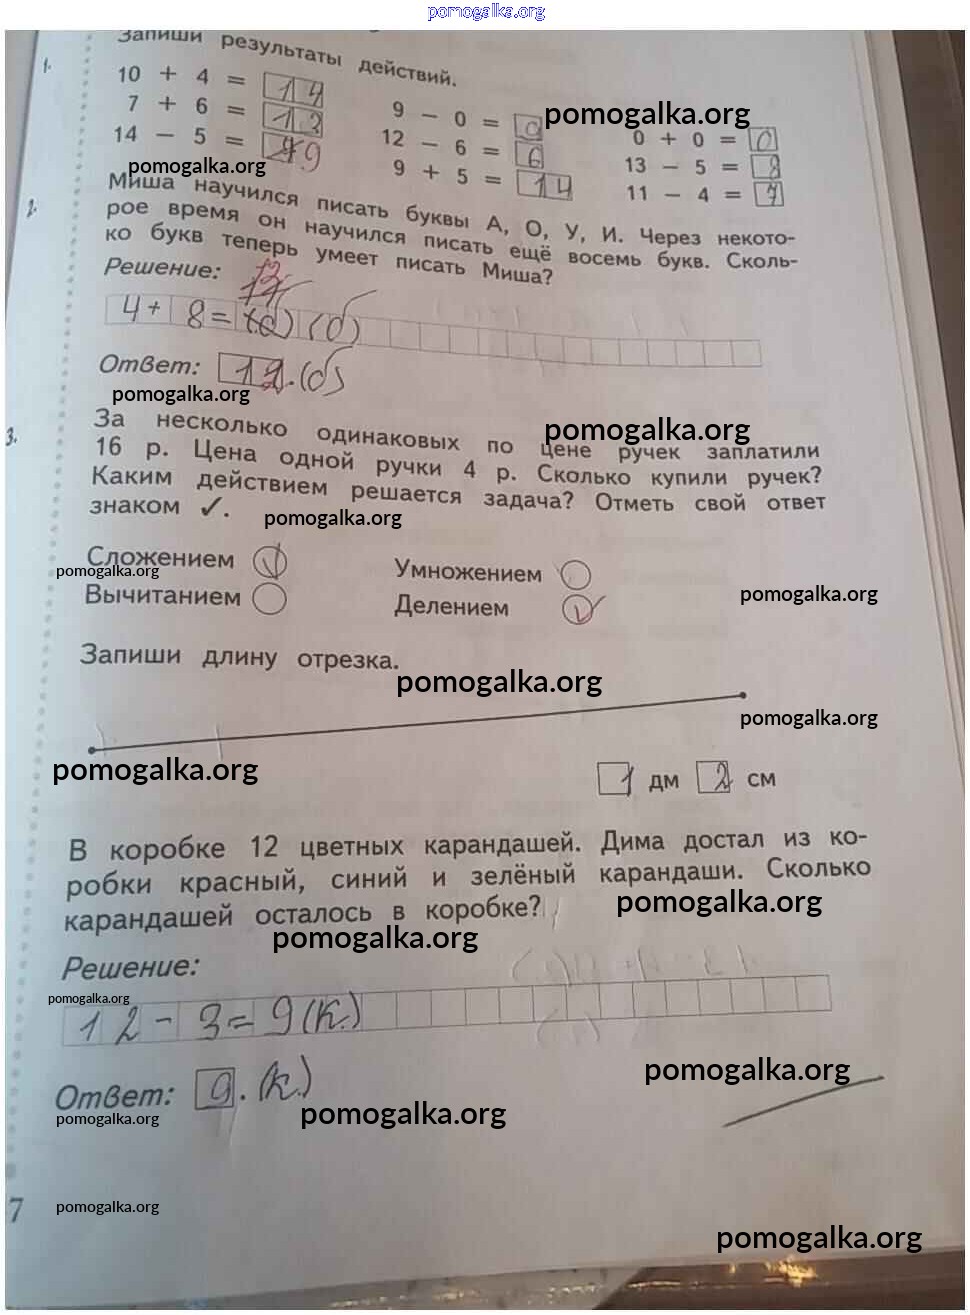 pomogalka.org
Запиши результаты действий.
1.
10 + 4 = 14
7 + 6 = 13
14 - 5 = 9
9 - 0 =
12 - 6 = 6
9 + 5 = 14
pomogalka.org
0 + 0 = 0
13 - 5 = 8
11 - 4 = 7
pomogalka.org
2.
Миша научился писать буквы А, О, У, И. Через некото-
рое время он научился писать ещё восемь букв. Сколь-
ко букв теперь умеет писать Миша?
Решение: 12
4 + 8 = (б)
Ответ: 12. (б)
pomogalka.org
3.
За несколько одинаковых по цене ручек заплатили
pomogalka.org
16 р. Цена одной ручки 4 р. Сколько купили ручек?
Каким действием решается задача? Отметь свой ответ
знаком ✓.
pomogalka.org
Сложением
Умножением
pomogalka.org
Вычитанием
Делением ✓
pomogalka.org
Запиши длину отрезка.
pomogalka.org
pomogalka.org
pomogalka.org
1 дм 2 см
В коробке 12 цветных карандашей. Дима достал из ко-
робки красный, синий и зелёный карандаши. Сколько
карандашей осталось в коробке?
pomogalka.org
pomogalka.org
Решение:
pomogalka.org
12 - 3 = 9 (к.)
Ответ: 9. (к.)
pomogalka.org
pomogalka.org
pomogalka.org
7
pomogalka.org
pomogalka.org